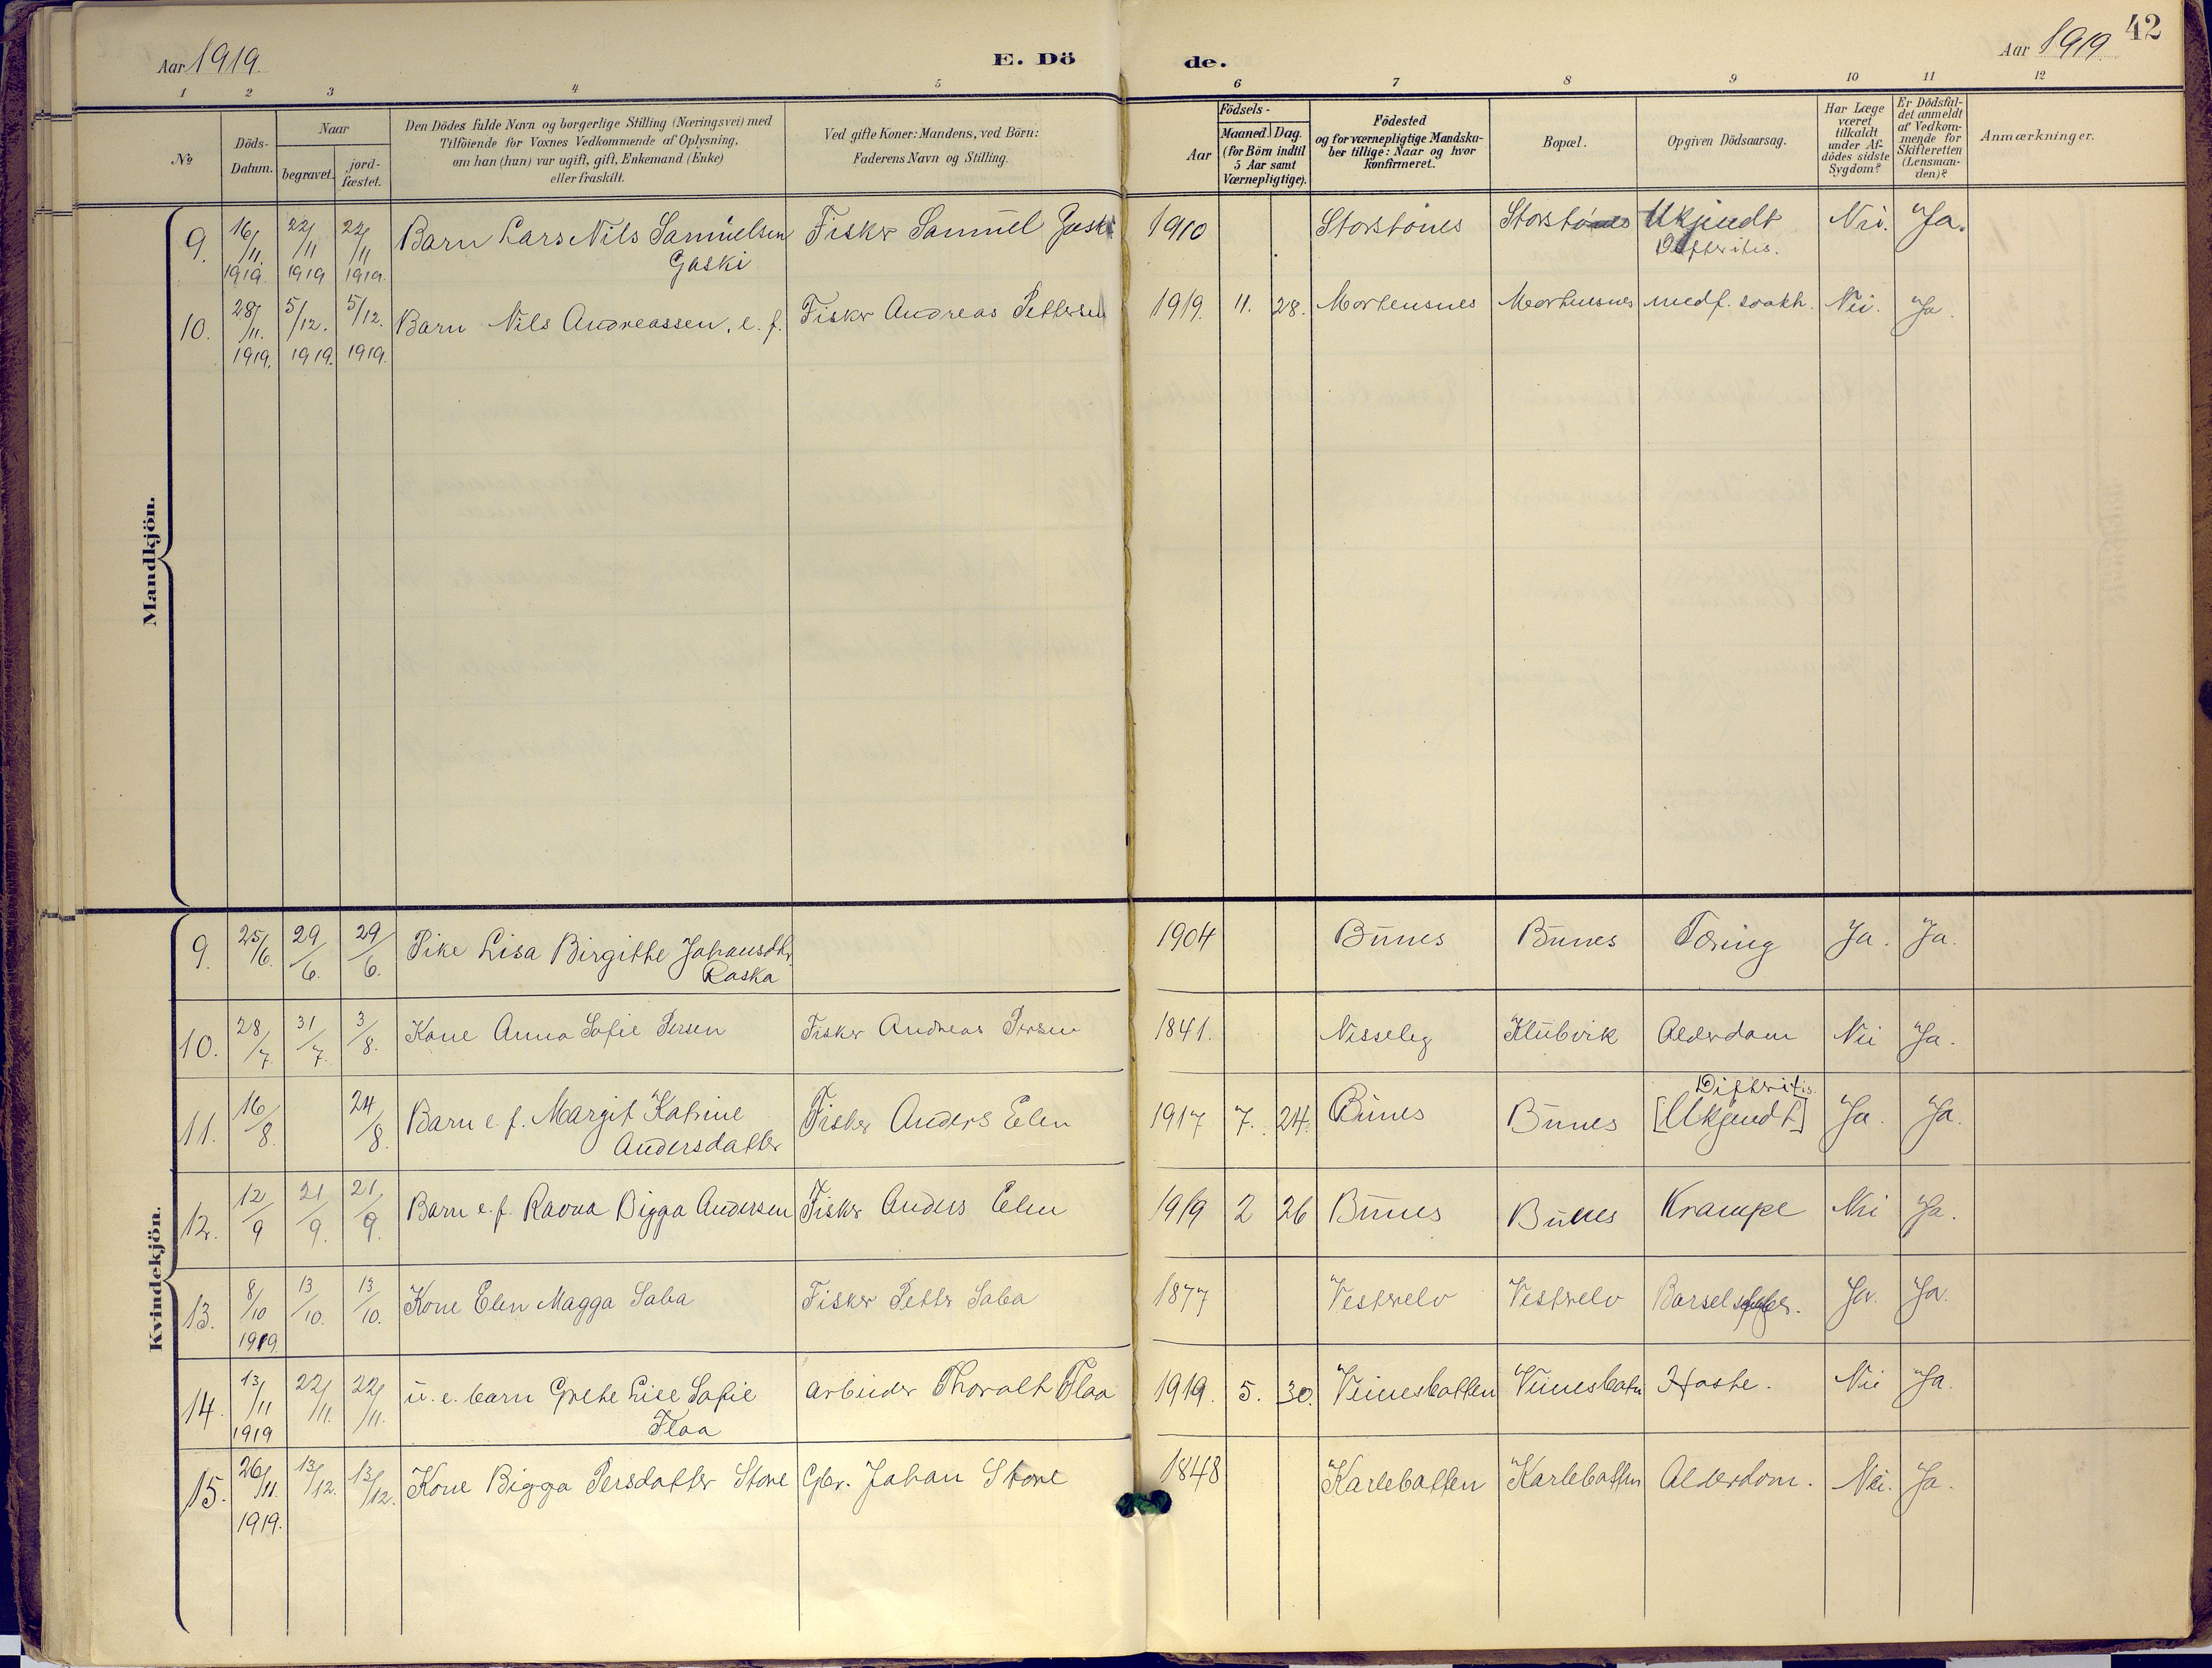 Aar 1919.
E. Dö
de.
Aar 1919.
42
1 2 3 4 5 6 7 8 9 10 11 12
No
Döds-Datum.
Naar
begravet.
jord-fæstet.
Den Dödes fulde Navn og borgerlige Stilling (Næringsvei) med
Tilföiende for Voxnes Vedkommende af Oplysning,
om han (hun) var ugift, gift, Enkemand (Enke)
eller fraskilt.
Ved gifte Koner: Mandens, ved Börn:
Faderens Navn og Stilling.
Födsels-
Aar
Maaned Dag.
(for Börn indtil
5 Aar samt
Værnepligtige).
Födested
og for værnepligtige Mandska-
ber tillige: Naar og hvor
konfirmeret.
Bopæl.
Opgiven Dödsaarsag.
Har Læge
været
tilkaldt
under Af-
dödes sidste
Sygdom?
Er Dödsfal-
det anmeldt
af Vedkom-
mende for
Skifteretten
(Lensman-
den)?
Anmærkninger.
Mandkjön.
9. 16/11. 1919. 22/11 1919 22/11 1919. Barn Lars Nils Samuelsen Fisker Samuel Gaski 1910 Storstones Storstones Ukjendt Nei. Ja.
Gaski Difteritis.
10. 28/11. 1919. 5/12. 1919. 5/12. 1919. Barn Nils Andreassen, e. f. Fisker Andreas Pettersen 1919. 11. 28. Mortensnes Mortensnes medf. svakh. Nei. Ja.
Kvindekjön.
9. 25/6. 29/6. 29/6. Pike Lisa Birgithe Johansdtr. 1904 Bunes Bunes Tæring Ja. Ja.
Raska
10. 28/7. 31/7. 3/8. Kone Anna Sofie Persen Fisker Andreas Persen 1841. Nesseby Klubvik Alderdom Nei Ja.
11. 16/8. 24/8. Barn e. f. Margit Katrine Fisker Anders Elen 1917 7. 24. Bunes Bunes Difteritis [Ukjendt] Ja. Ja.
Andersdatter
12. 12/9 21/9. 21/9. Barn e. f. Ravna Bigga Andersen Fisker Anders Elen 1919 2 26 Bunes Bunes Krampe Nei Ja.
13. 8/10 1919 13/10. 13/10. Kone Elen Magga Saba Fisker Petter Saba 1877 Vesterelv Vesterelv Barsel Ja. Ja.
14. 13/11 1919 22/11. 22/11. u. e. barn Grethe Lise Sofie Arbeider Thoralf Flaa 1919. 5. 30. Veinesbotten Veinesbotn Hoste. Nei Ja.
Flaa
15. 26/11. 1919. 13/12. 13/12. Kone Bigga Persdatter Store Gbr. Johan Store 1848 Karlebotten Karlebotten Alderdom. Nei. Ja.